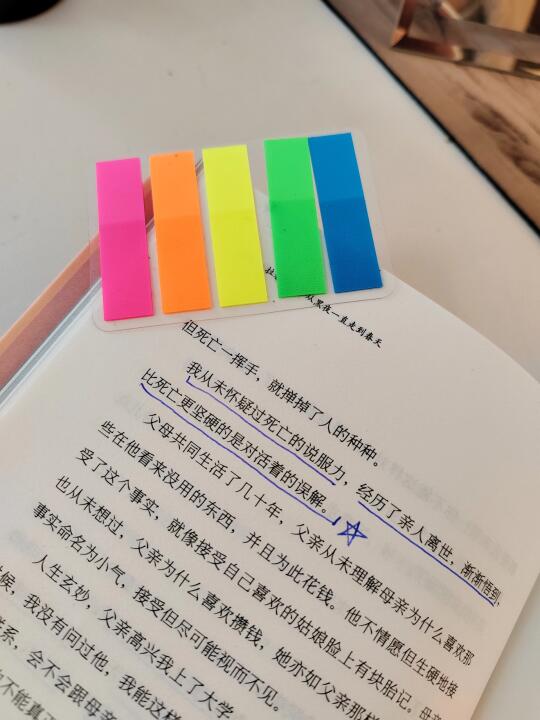 从黑夜一直走到春天
但死亡一挥手，就掸掉了人的种种。
我从未怀疑过死亡的说服力，经历了亲人离世，渐渐悟到，
比死亡更坚硬的是对活着的误解。
父母共同生活了几十年，父亲从未理解母亲为什么喜欢那
些在他看来没用的东西，并且为此花钱。他不情愿但生硬地接
受了这个事实，就像接受自己喜欢的姑娘脸上有块胎记。母亲
也从未想过，父亲为什么喜欢攒钱，她亦如父亲那样
事实命名为小气，接受但尽可能视而不见。
人生玄妙，父亲高兴我上了大学
候，我没有问过他，我能这样
系，会不会跟母亲
不能真正